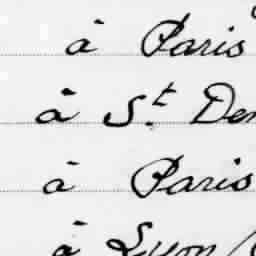 à Paris
à St. Den
à Paris
à Lyon